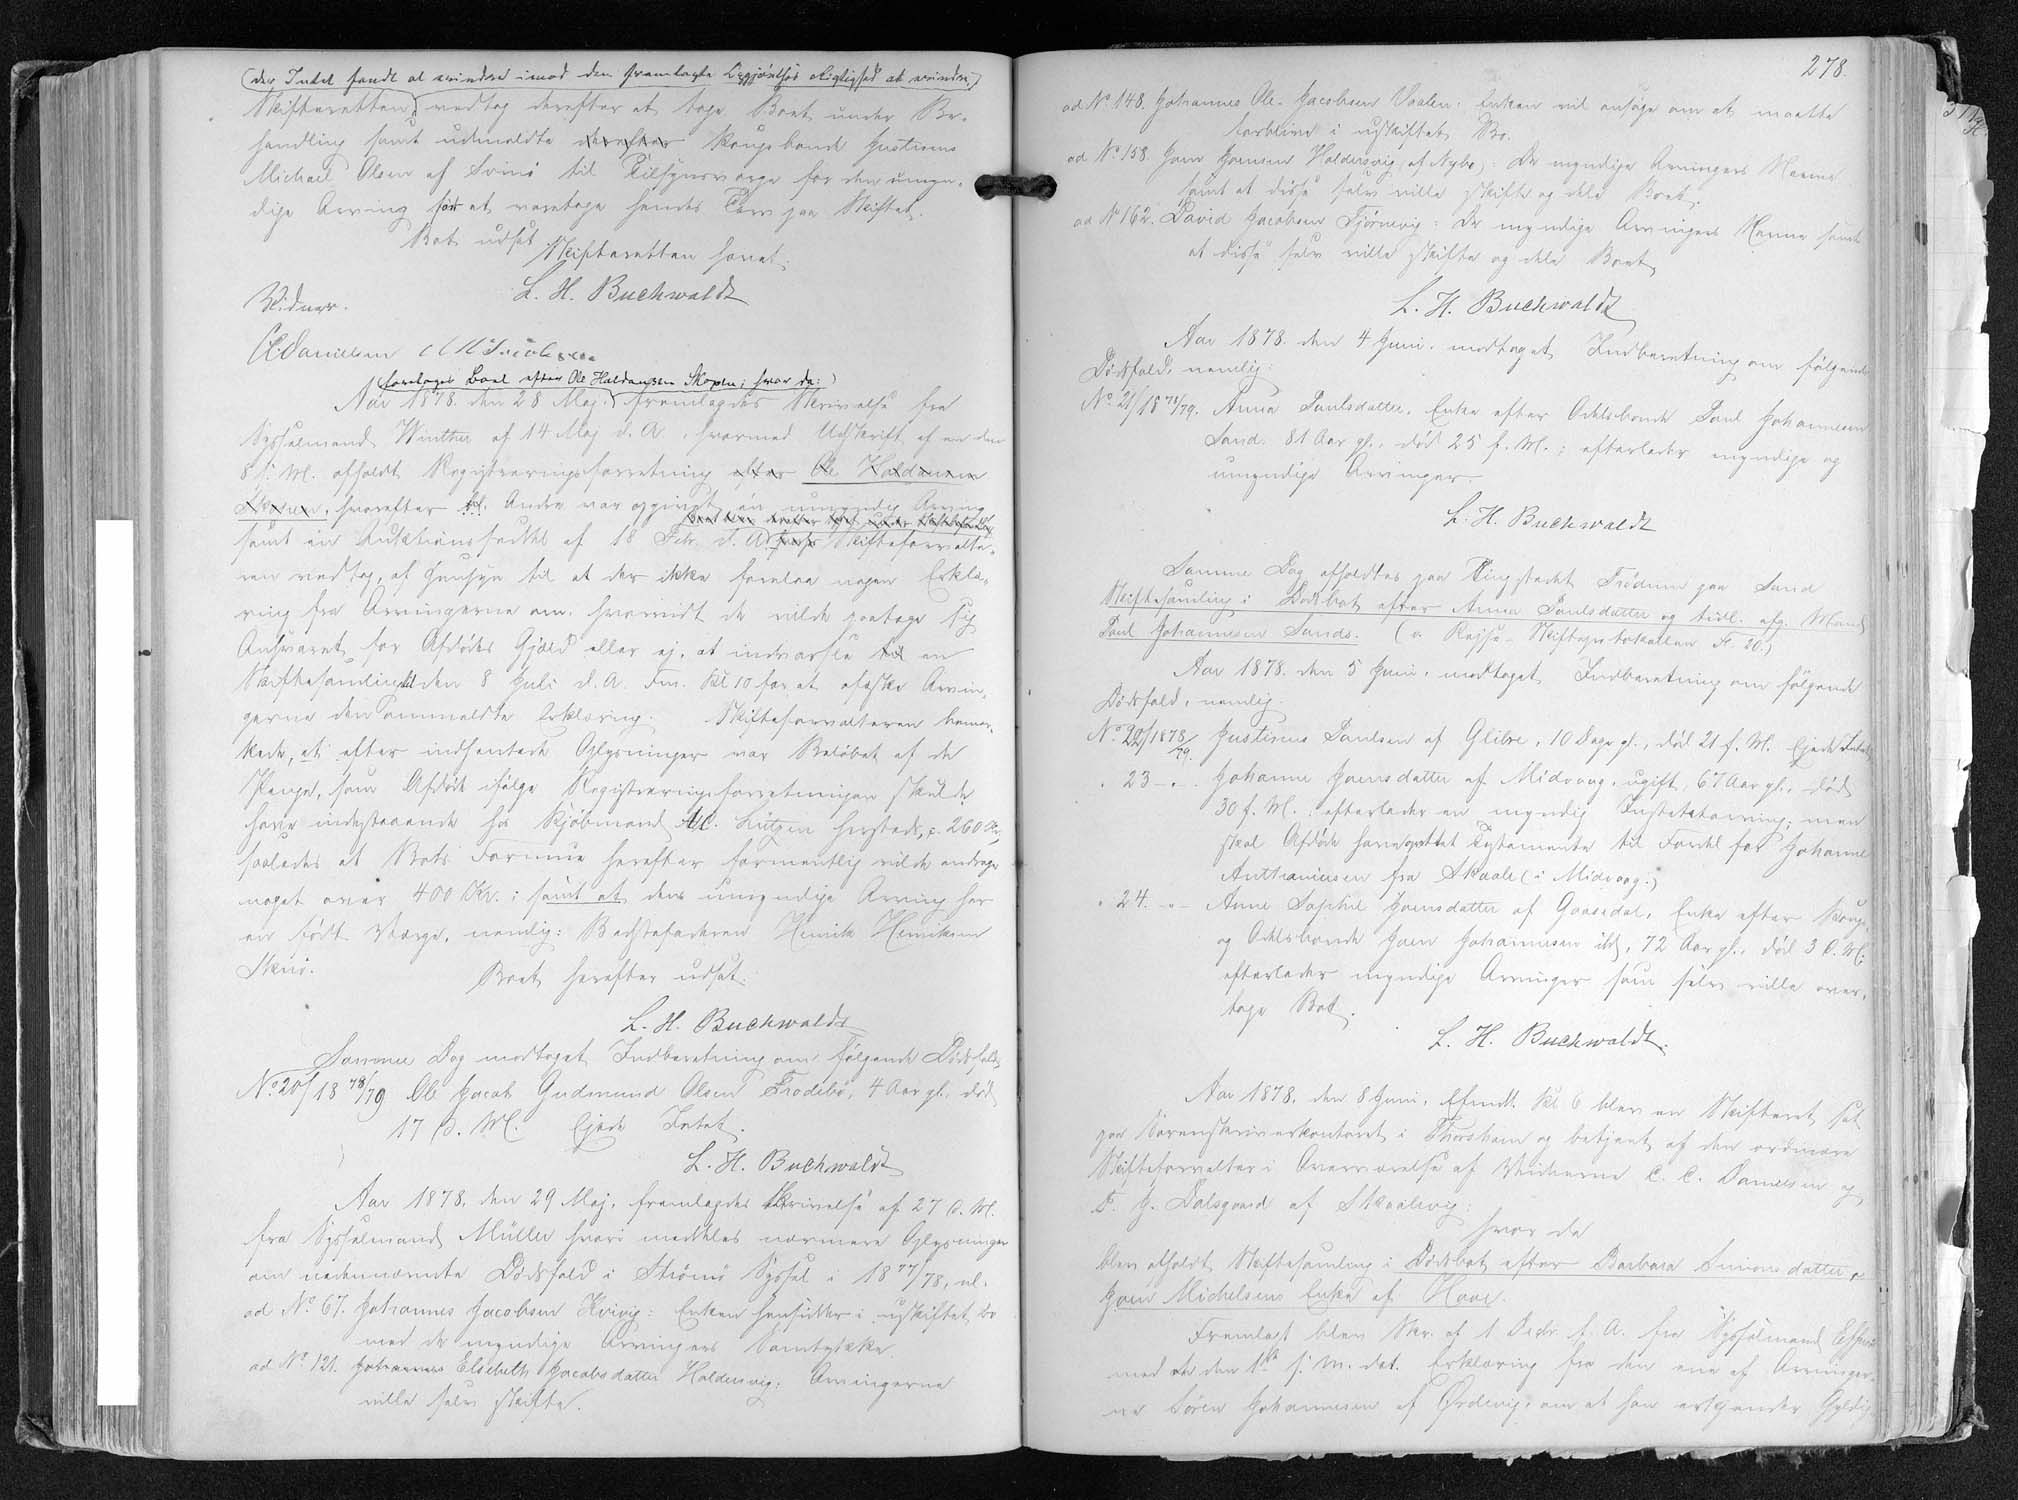 (der Intet fandt at erindre imod den fremlagte Opgjørelses Rigtighed at erindre.)
Skifteretten vedtog derefter at tage Boet under Be-
handling samt udmeldte derefter Kongsbonde Justinus
Michael Olsen af Svinö til Tilsynsværge for den umyn-
dige Arving for at varetage hendes Tarv paa Skiftet.
Boet udsat
Skifteretten hævet.
L. H. Buchwaldt
Vidner.
C. Danielsen M Jacobsen
foretoges Boet efter Ole Haldansen Skopen; hvor da:
Aar 1878. den 28 Maj. fremlagdes Skrivelse fra
Sysselmand Winther af 14 Maj d. A., hvormed Udskrift af en den
8 s. M. afholdt Registreringsforretning efter Ole Haldansen
Skopen, hvorefter bl. Andre var opgivet en umyndig Arving
samt en Auktionsfuldm. af 18 Febr. d. A. Skifteforvalte-
ren vedtog, af Hensyn til at der ikke forelaa nogen Erklæ-
ring fra Arvingerne om, hvorvidt de vilde paatage sig
Ansvaret for Afdödes Gjæld eller ej, at indvarsle til en
Skiftesamling til den 8 Juli d. A. Fm. Kl 10 for at afæske Arvin-
gerne den ommeldte Erklæring. Skifteforvalteren bemær-
kede, at efter indhentede Oplysninger var Beløbet af de
Penge, som Afdöde ifølge Registreringsforretningen skulde
have indestaaende hos Kjöbmand M. C. Lützen hersteds, c. 260 Kr.,
saaledes at Boets Formue herefter formentlig vilde andrage
noget over 400 Kr.; samt at den umyndige Arving har
en født Værge, nemlig: Bedstefaderen Henrik Henriksen
Skuö.
Boet herefter udsat.
L. H. Buchwaldt
Samme Dag modtoget Indberetning om følgende Dødsfald
No. 20/1878/79 Ole Jacob Gudmund Olsen Trodebö, 4 Aar gl., död
17 d. M. Ejede Intet.
L. H. Buchwaldt
Aar 1878, den 29 Maj, fremlagdes Skrivelse af 27 d. M.
fra Sysselmand Müller hvori meddeles nærmere Oplysninger
om nedennævnte Dødsfald i Strömö Syssel i 1877/78, nl.
ad No. 67. Johannes Jacobsen Kvivig: Enken hensidder i uskiftet Bo
med de myndige Arvingers Samtykke.
ad No. 121. Johannes Elsebeth Jacobsdatter Haldersvig: Arvingerne
ville selv skifte.
278.
ad No. 148. Johannes Ole Jacobsen Vaalen: Enken vil ansøge om at maatte
forblive i uskiftet Bo.
ad No. 158. Joen Joensen Haldersvig (af Nybo): De myndige Arvingers Navne
samt at disse selv ville skifte og dele Boet.
ad No. 162. David Jacobsen Tjörnevig: De myndige Arvingers Navne samt
at disse selv ville skifte og dele Boet
L. H. Buchwaldt
Aar 1878. den 4 Juni. modtoget Indberetning om følgende
Dødsfald, nemlig:
No. 21/1878/79. Anna Paulsdatter, Enke efter Odelsbonde Paul Johannesen
Sand. 81 Aar gl., død 25 f. M.; efterlader myndige og
umyndige Arvinger.
L. H. Buchwaldt
Samme Dag afholdtes paa Tingstedet Trödum paa Sand
Skiftesamling i Dødsboet efter Anna Paulsdatter og tidl. afg. Mand
Paul Johannesen Sands. (v. Rejse-Skifteprotokollen S. 20.)
Aar 1878. den 5 Juni. modtoget Indberetning om følgende
Dødsfald, nemlig.
No. 22/1878/79. Justinus Paulsen af Glibre, 10 Dage gl., död 21 f. M. Ejede Intet
" 23 - " - Johanne Joensdatter af Midvaag, ugift, 67 Aar gl., död
30 f. M.; efterlader en myndig Intestatarving; men
skal Afdöde have oprettet Testamente til Fordel for Johanne
Anthoniusen fra Skaale (i Midvaag.)
" 24. - " - Anne Sophie Joensdatter af Gaasedal, Enke efter Kongs-
og Odelsbonde Joen Johannesen ibd., 72 Aar gl., död 3 d. M.;
efterlader myndige Arvinger som selv ville over-
tage Boet.
L. H. Buchwaldt.
Aar 1878. den 8 Juni, Efmdt. Kl 6 blev en Skifteret sat
paa Sorenskriverkontoret i Thorshavn og betjent af den ordinære
Skifteforvalter i Overværelse af Vidnerne C. C. Danielsen og
D. J. Dalsgaard af Skaalevig:
hvor da
blev afholdt Skiftesamling i Dødsboet efter Barbara Simonsdatter,
Joen Michelsens Enke af Hove.
Fremlagt blev Skr. af 1 Decbr f. A. fra Sysselmand
med en den 1ste s. M. dat. Erklæring fra den ene af Arvinger-
ne Sören Johannesen af Ørdevig, om at han erkjender Gyldig-